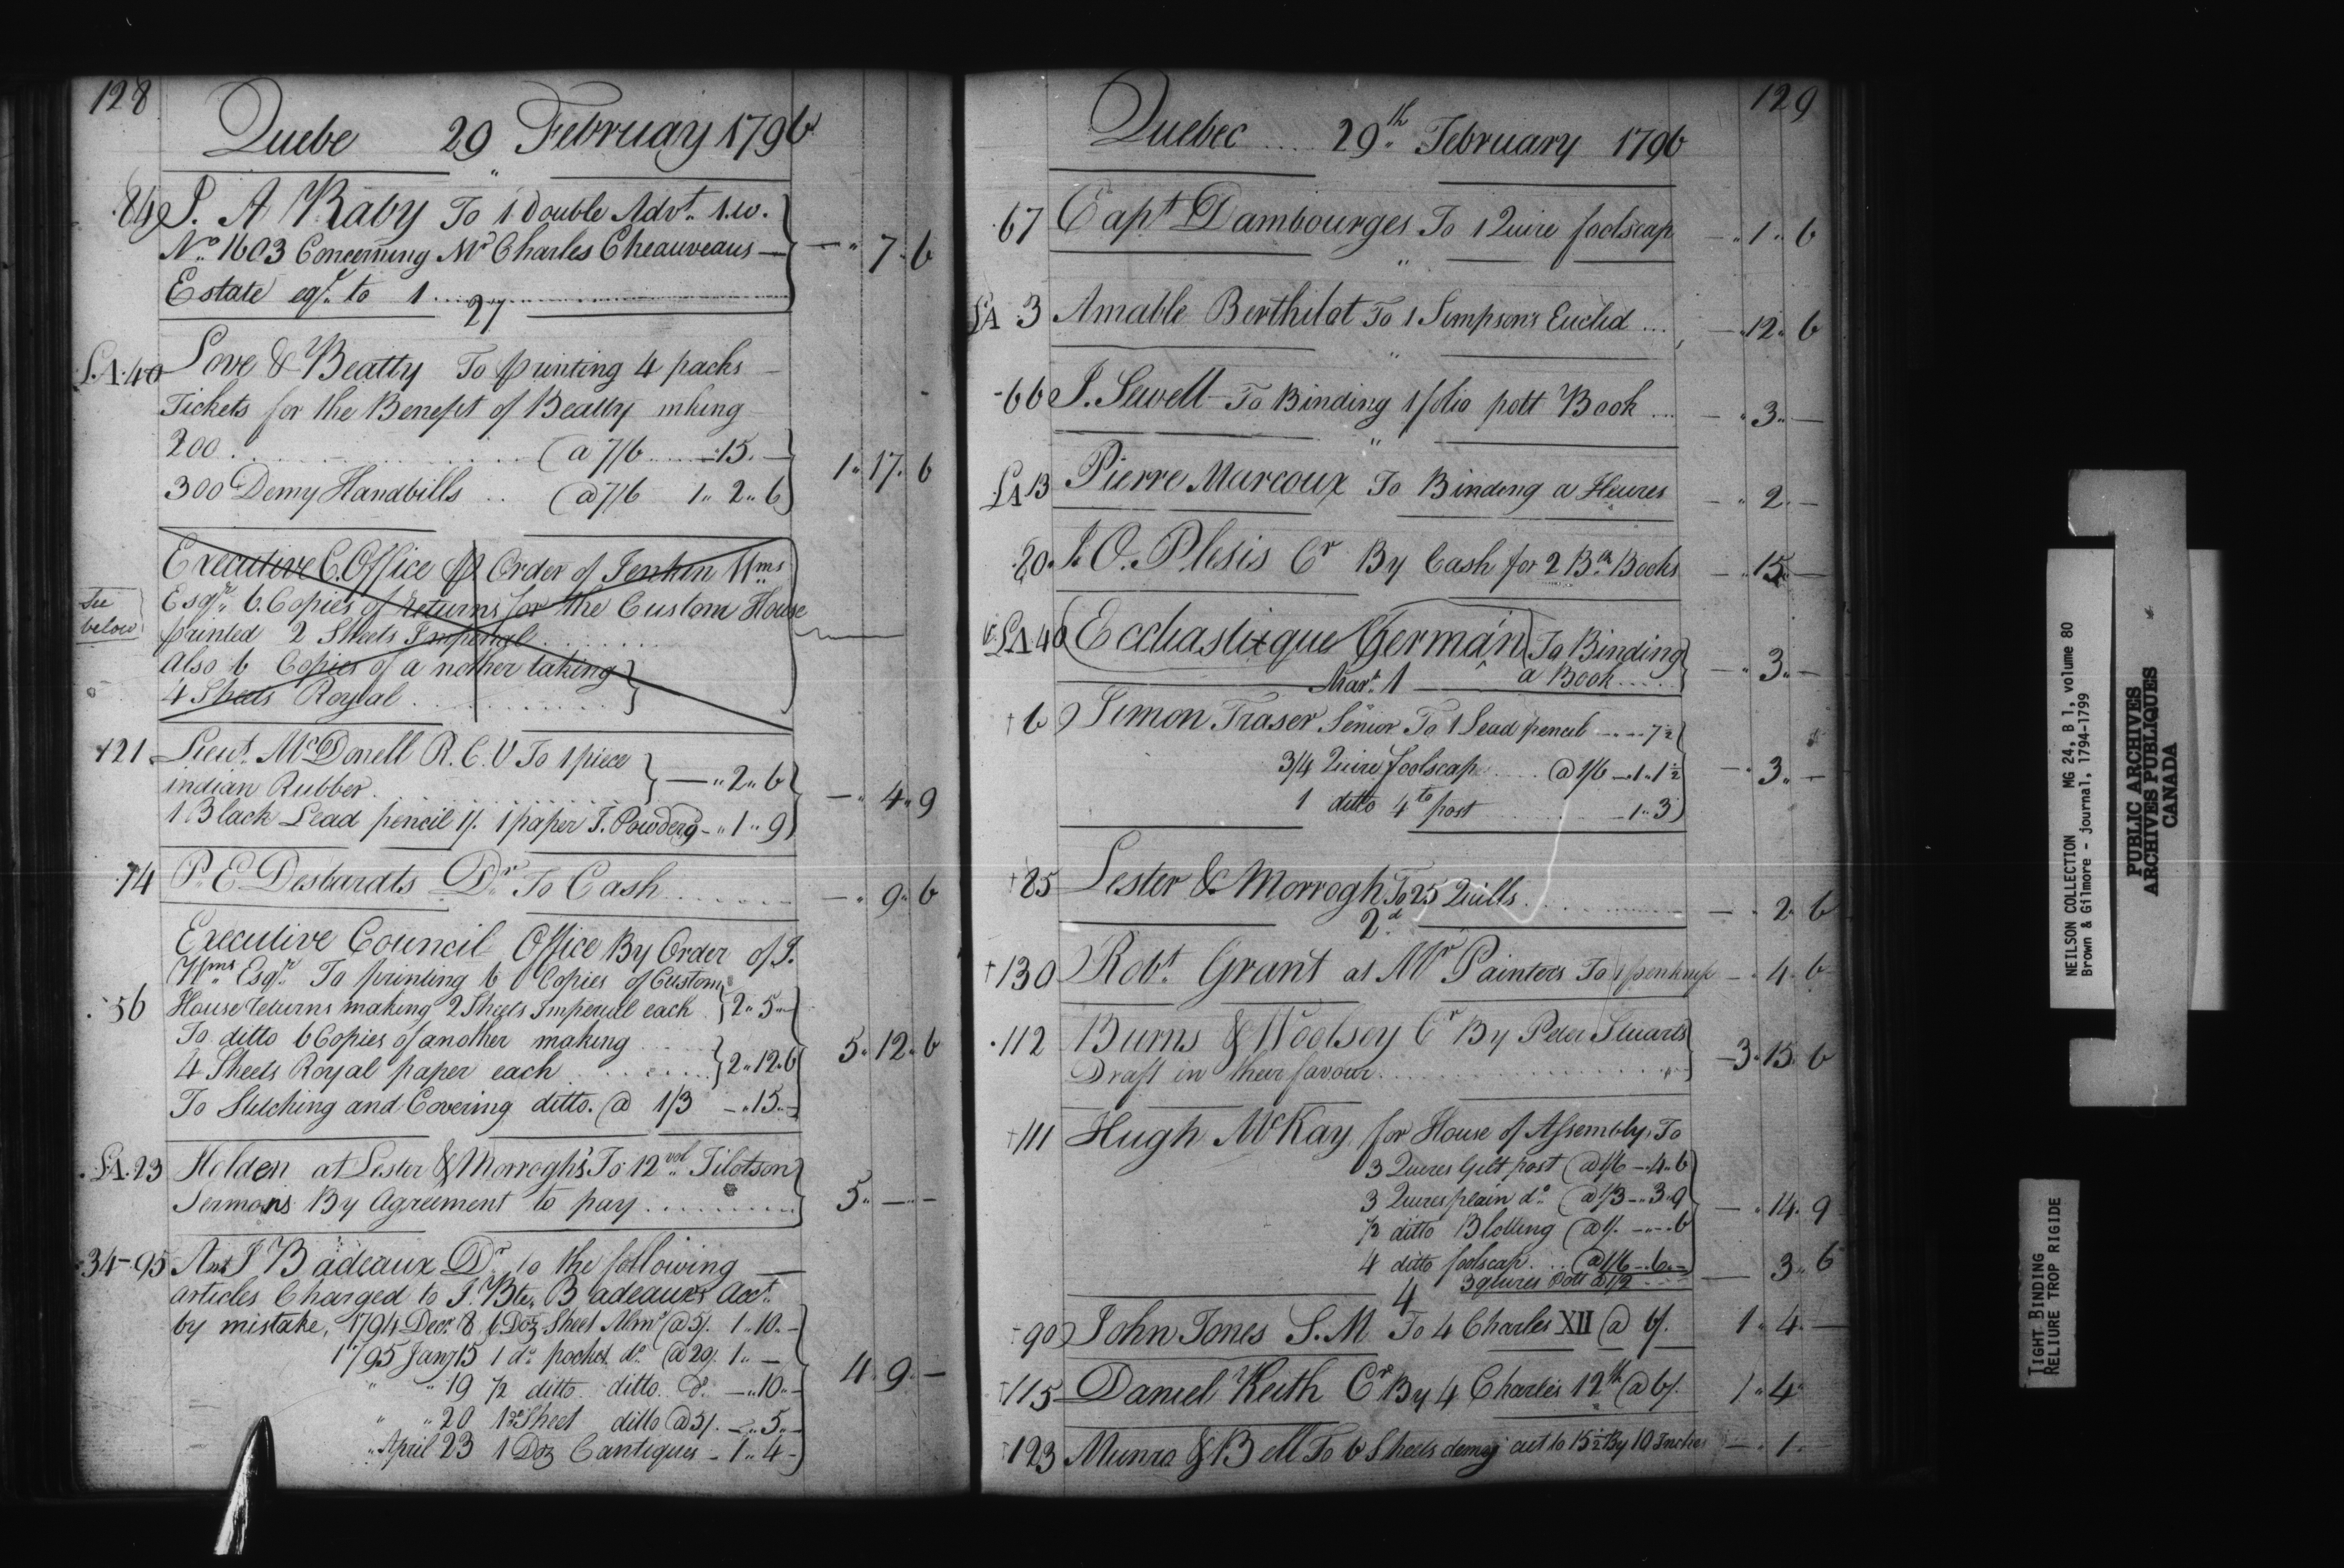 128
Quebe 29 February 1796
84 P. A Raby To 1 Double Advt. 1.w.
No. 1603 Concerning Mr Charles Cheauveaus — — „ 7 „ 6
Estate eql. to 1
27
L.A. 40 Love & Beatty To printing 4 packs —
Tickets for the Benefit of Beatty mking
200 @ 7/6 — „ 15 „ —
300 Demy Handbills .. @ 7/6 1 „ 2 „ 6 1 „ 17 „ 6
Executive C. Office Order of Jenkin Wms
See below
Esqr. 6 Copies of returns for the Custom House
printed 2 Sheets Imperial
also 6 Copies of a nother taking
4 Sheets Royal
+21 Lieut. McDonell R. C. V To 1 piece
indian Rubber — „ 2 „ 6
1 Black Lead pencil 1/. 1 paper I. Powder — „ 1 „ 9 — „ 4 „ 9
74 P. E Desbarats Dr To Cash — „ 9 „ 6
Executive Council Office By Order of J.
Wms Esqr. To printing 6 Copies of Custom
56 House returns making 2 Sheets Imperial each 2 „ 5 „ —
To ditto 6 Copies of another making
4 Sheets Royal paper each 2 „ 12 „ 6 5 „ 12 „ 6
To Stitching and Covering ditto. @ 1/3 — „ 15 „ —
L.A. 23 Holden at Lester & Morrogh's To 12 vol. Tilotson
Sermons By Agreement to pay 5 „ — „ —
34-95 Ant J Badeaux Dr to the following
articles Charged to J. Bte. Badeaux's Acct.
by mistake, 1794 Decr. 8 6 Doz Sheet Almc @ 5/. 1 „ 10 „ —
1795 Jany 15 1 do. pocket do. @ 20/. 1 „ —
„ „ 19 1/2 ditto ditto. do. — „ 10 „ —
4 „ 9 „ —
„ „ 20 1 do Sheet ditto @ 5/. — „ 5 „ —
„ April 23 1 Doz Cantiques — 1 „ 4 —
129
Quebec 29th. February 1796
67 Capt Dambourges To 1 Quire foolscap — „ 1 „ 6
„
LA 3 Amable Berthilot To 1 Simpson's Euclid ... — „ 12 „ 6
„
66 J. Sewell To Binding 1 folio pott Book ... — „ 3 „ —
„
LA 13 Pierre Marcoux To Binding a Heures — „ 2 „ —
20. J. O. Plesis Cr By Cash for 2 Bn Books — „ 15 „ —
LA 40 (Eccliastique German) To Binding
a Book — „ 3 „ —
Mar. 1
+6 Simon Fraser Senior To 1 Lead pencil 7½
3/4 Quire foolscap @ 1/6 — 1 „ 1½ — „ 3 „ —
1 ditto 4to post — 1 „ 3
+85 Lester & Morrogh To 25 Quills — „ 2 „ 6
2d.
+130 Robt. Grant at Mr Painters To 1 penknife — „ 4 „ 6
112 Burns & Woolsey Cr By Peter Stuarts
Draft in their favour 3 „ 15 „ 6
+111 Hugh McKay for House of Assembly, To
3 Quires Gilt post @ 1/6 — „ 4 „ 6
3 Quires plain do. @ 1/3 — „ 3 „ 9
— „ 14 „ 9
1/2 ditto Blotting @ 1/. — „ — „ 6
4 ditto foolscap. .. @ 1/6 — „ 6 „ —
3 quires Pott @ 1/2 — 3 „ 6
4
90 John Jones S. M To 4 Charles XII @ 6/. 1 „ 4 „ —
+115 Daniel Keith Cr By 4 Charles 12th @ 6/. 1 „ 4 „
+123 Munro & Bell To 6 Sheets demy cut to 15½ By 10 Inches — „ 1 „
NEILSON COLLECTION MG 24, B 1, volume 80
Brown & Gilmore - journal, 1794-1799
PUBLIC ARCHIVES
ARCHIVES PUBLIQUES
CANADA
TIGHT BINDING
RELIURE TROP RIGIDE